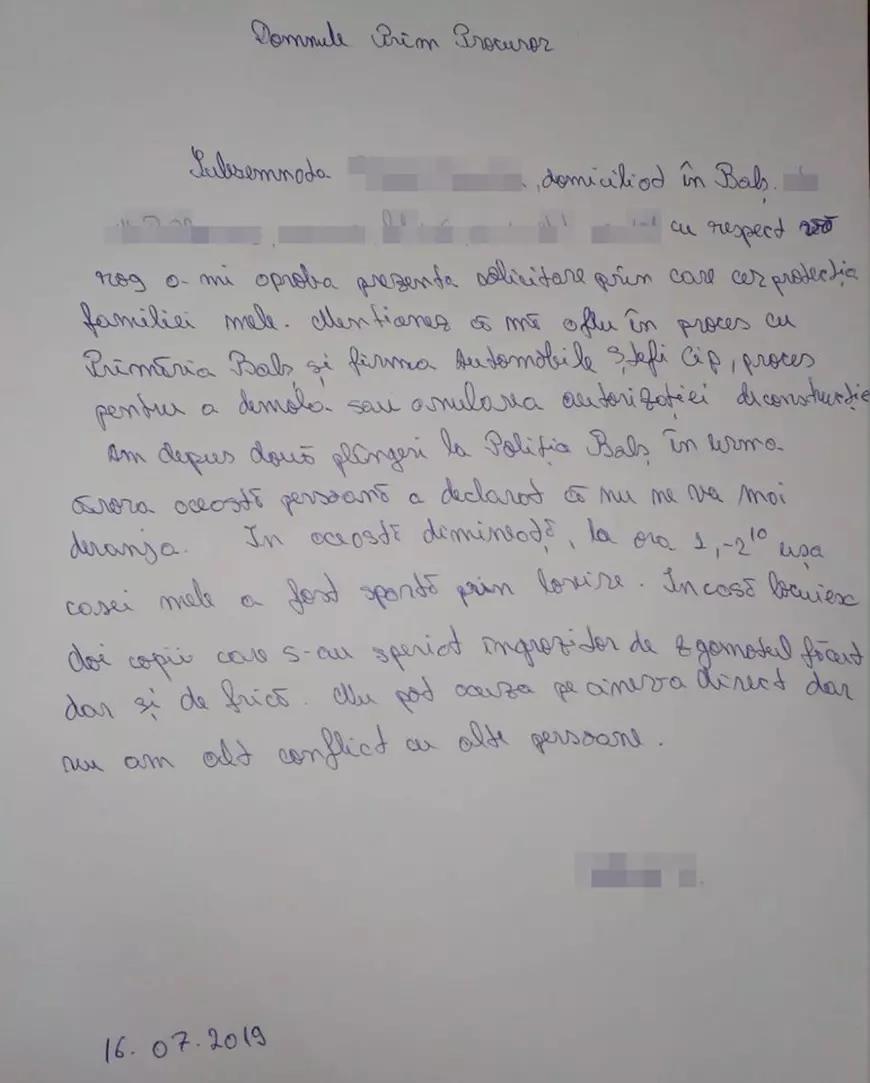 Domnule Prim Procuror
Subsemnata domiciliat în Balș
cu respect vă
rog a-mi aproba prezenta solicitare prin care cer protecția
familiei mele. Menționez că mă aflu în proces cu
Primăria Balș și firma Automobile Ștefi Cip, proces
pentru a demola sau anularea autorizației de construcție
Am depus două plângeri la Poliția Balș în urma
cărora această persoană a declarat că nu ne va mai
deranja. In această dimineață, la ora 1,-2¹⁰ ușa
casei mele a fost spartă prin lovire. In casă locuiesc
doi copii care s-au speriat îngrozitor de zgomotul făcut
dar și de frică. Nu pot acuza pe cineva direct dar
nu am alt conflict cu alte persoane.
16.07.2019